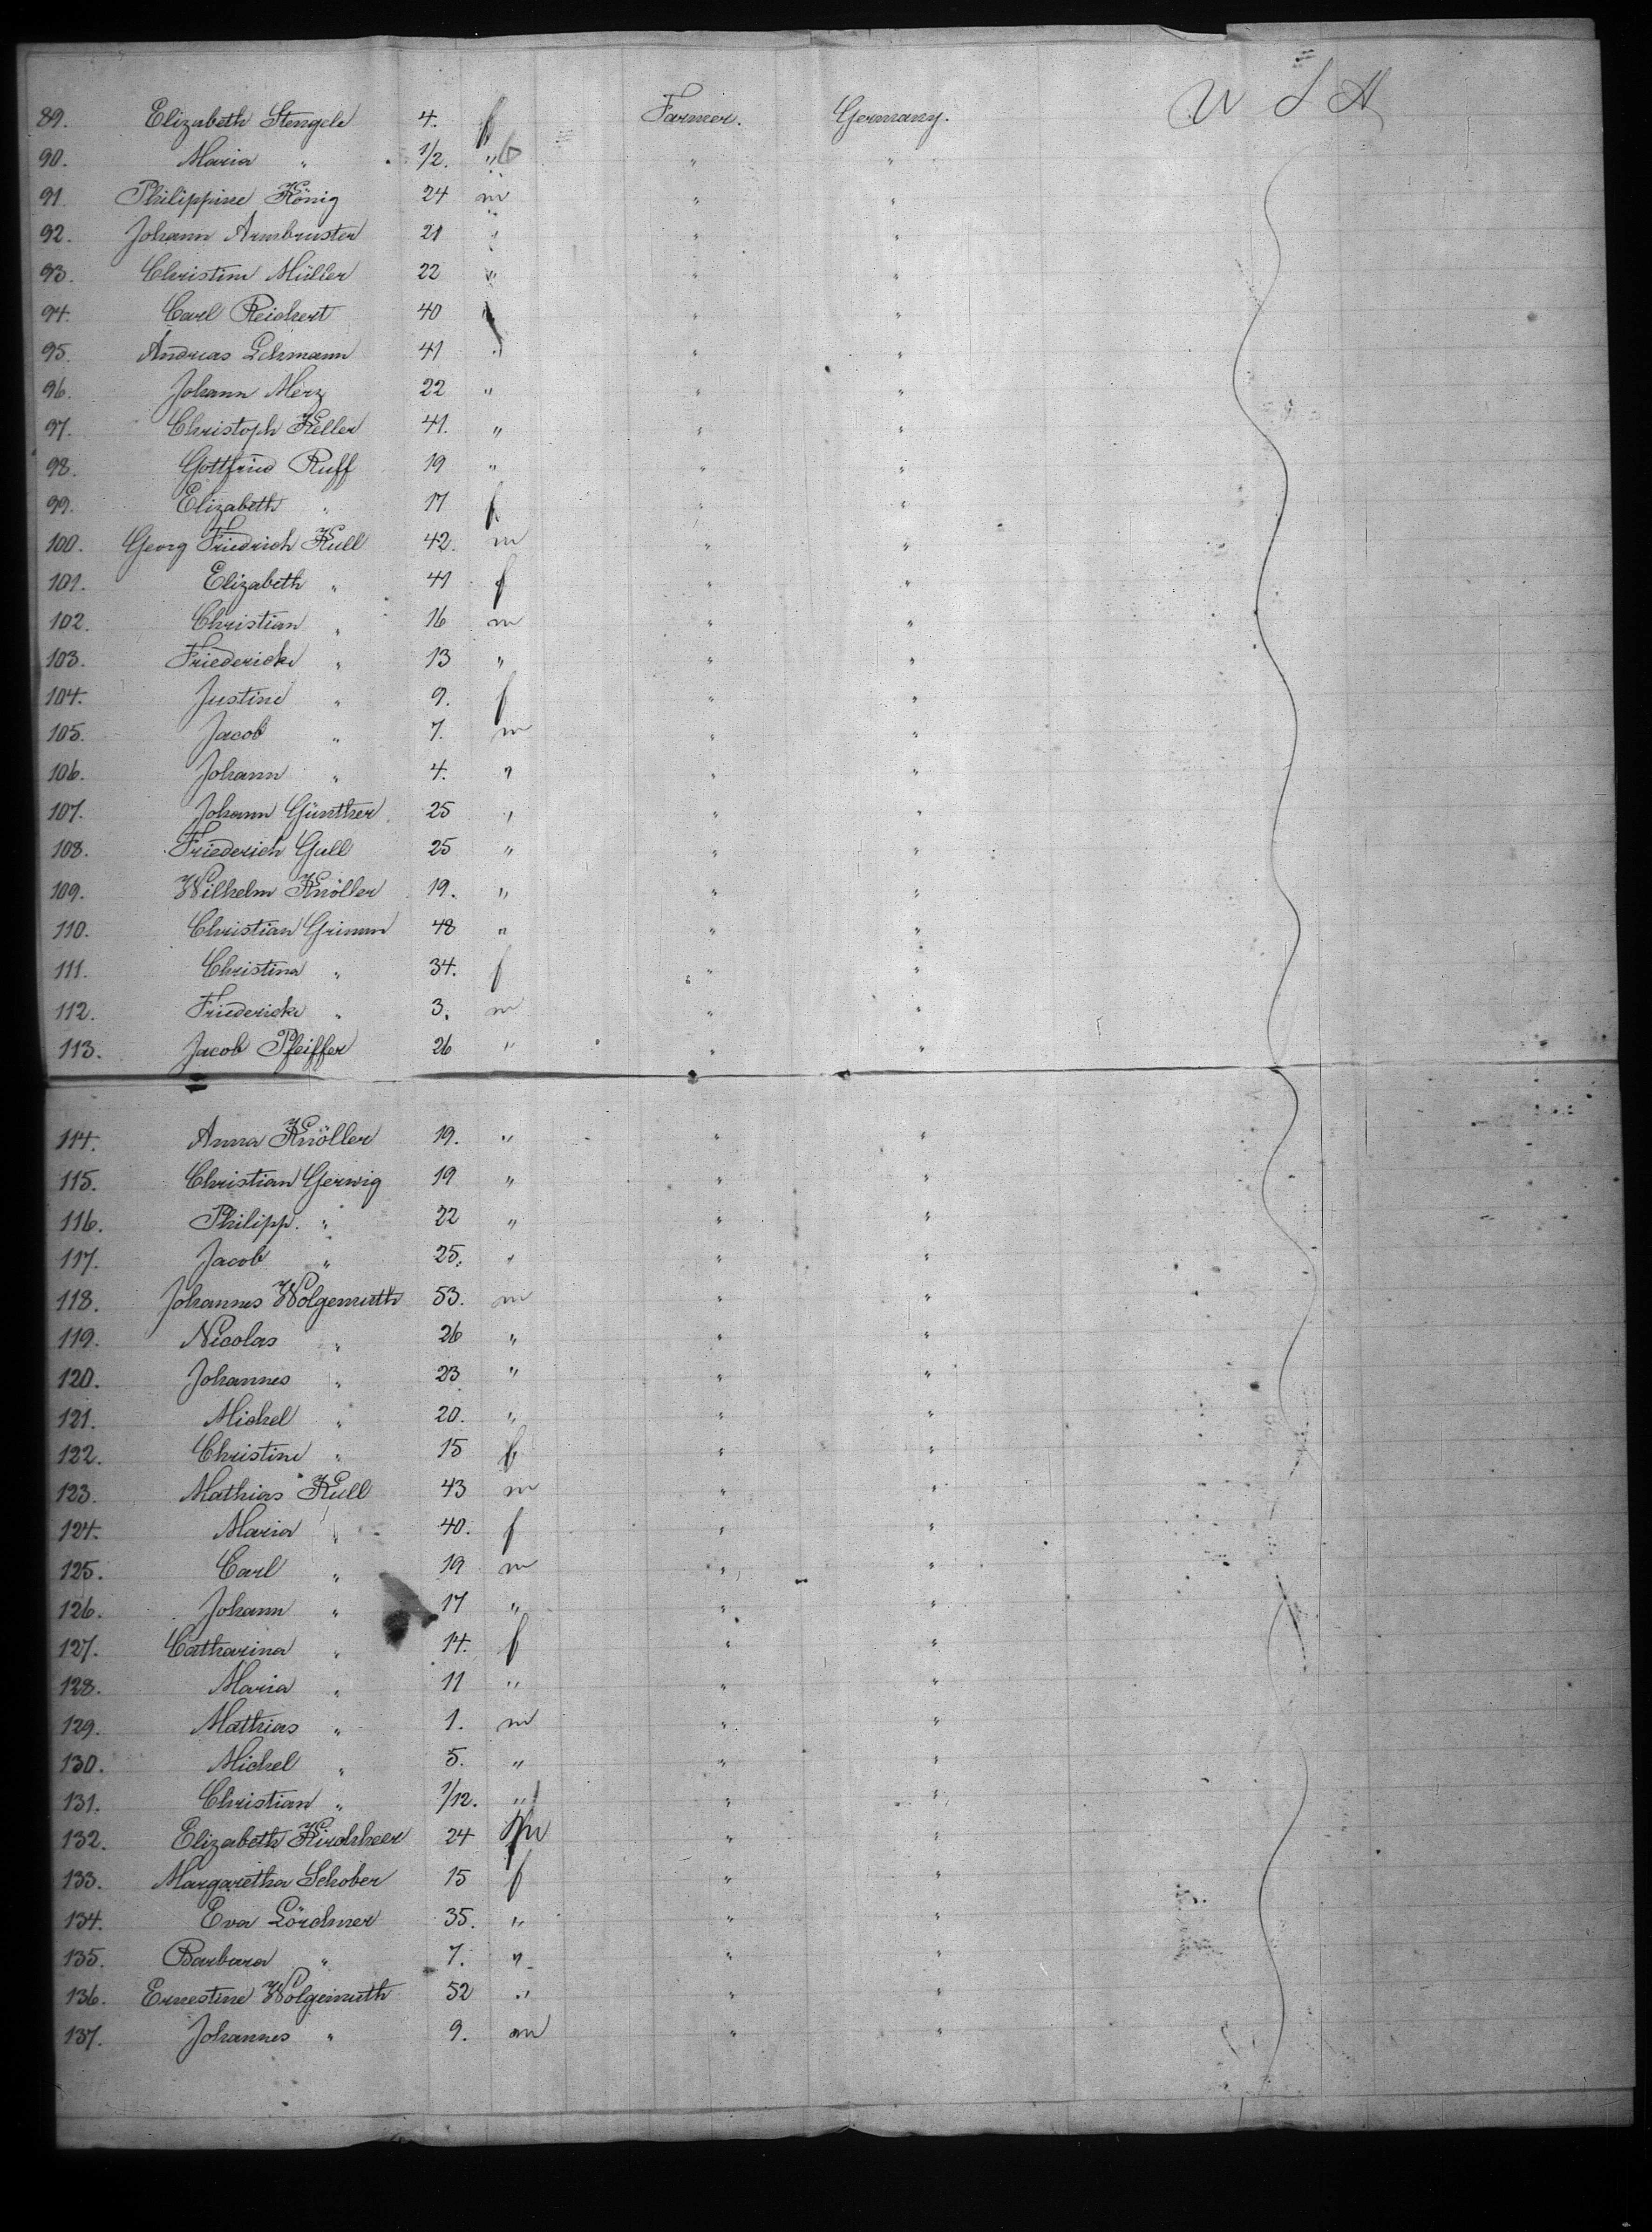 89. Elizabeth Stengele 4. f Farmer. Germany. U S A
90. Maria " 1/2. " " "
91. Philippine König 24 m " "
92. Johann Armbruster 21 " " "
93. Christine Müller 22 " " "
94. Carl Reichert 40 " " "
95. Andreas Lehmann 41 " " "
96. Johann Merz 22 " " "
97. Christoph Keller 41. " " "
98. Gottfried Ruff 19 " " "
99. Elizabeth " 17 f " "
100. Georg Friedrich Kull 42. m " "
101. Elizabeth " 41 f " "
102. Christian " 16 m " "
103. Friedericke " 13 " " "
104. Justine " 9. f " "
105. Jacob " 7. m " "
106. Johann " 4. " " "
107. Johann Günther 25 " " "
108. Friederich Gull 25 " " "
109. Wilhelm Knöller 19. " " "
110. Christian Grimm 48 " " "
111. Christina " 34. f " "
112. Friedericke " 3. m " "
113. Jacob Pfeiffer 26 " " "
114. Anna Knöller 19. " " "
115. Christian Gerwig 19 " " "
116. Philipp. " 22 " " "
117. Jacob " 25. " " "
118. Johannes Wolgemuth 53. m " "
119. Nicolas " 26 " " "
120. Johannes " 23 " " "
121. Michel " 20. " " "
122. Christine " 15 f " "
123. Mathias Kull 43 m " "
124. Maria " 40. f " "
125. Carl " 19 m " "
126. Johann " 17 " " "
127. Catharina " 14. f " "
128. Maria " 11 " " "
129. Mathias " 1. m " "
130. Michel " 5. " " "
131. Christian " 1/12. " " "
132. Elizabeth Kirchheer 24 f " "
133. Margaretha Schober 15 f " "
134. Eva Lörchner 35. " " "
135. Barbara " 7. " " "
136. Ernestine Wolgemuth 52 " " "
137. Johannes " 9. m " "